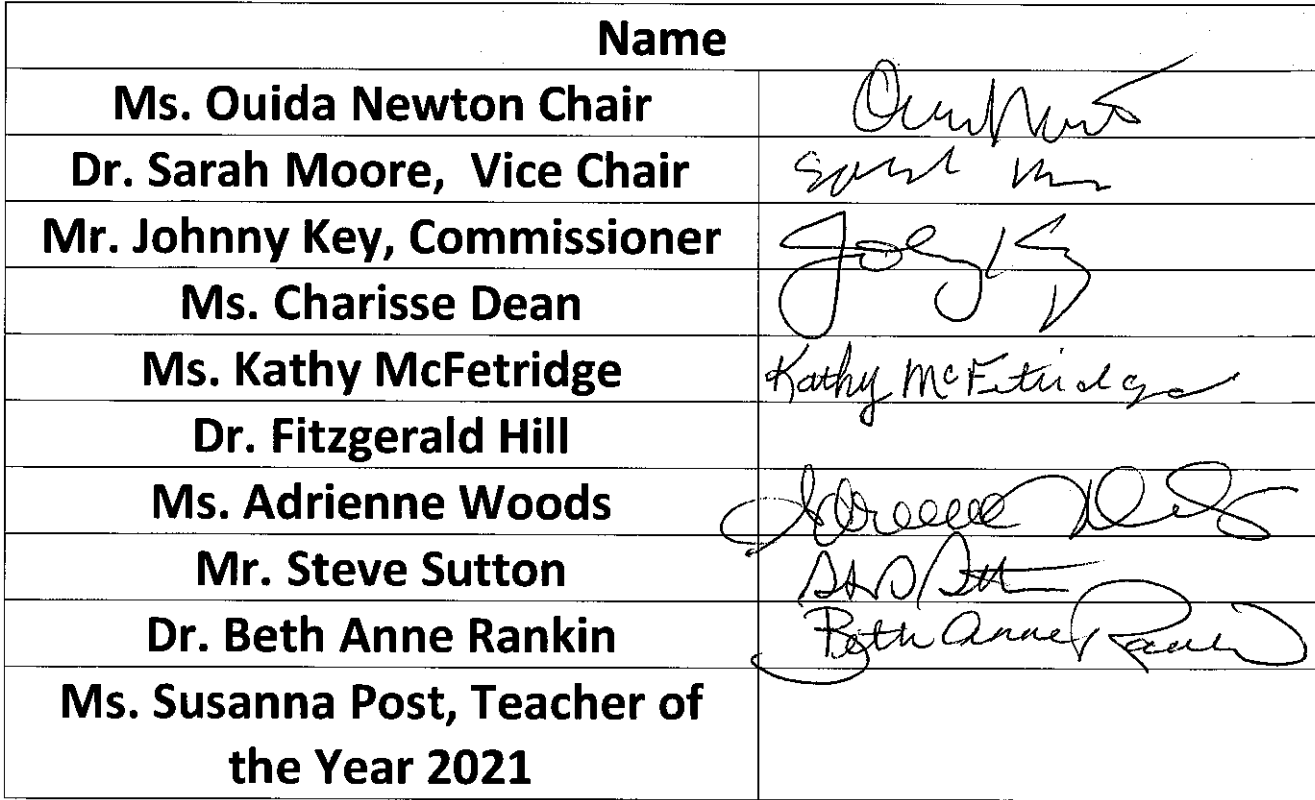 Name
Ms. Ouida Newton Chair
Dr. Sarah Moore, Vice Chair
Mr. Johnny Key, Commissioner
Ms. Charisse Dean
Ms. Kathy McFetridge Kathy McFetridge
Dr. Fitzgerald Hill
Ms. Adrienne Woods
Mr. Steve Sutton
Dr. Beth Anne Rankin Beth Anne Rankin
Ms. Susanna Post, Teacher of
the Year 2021